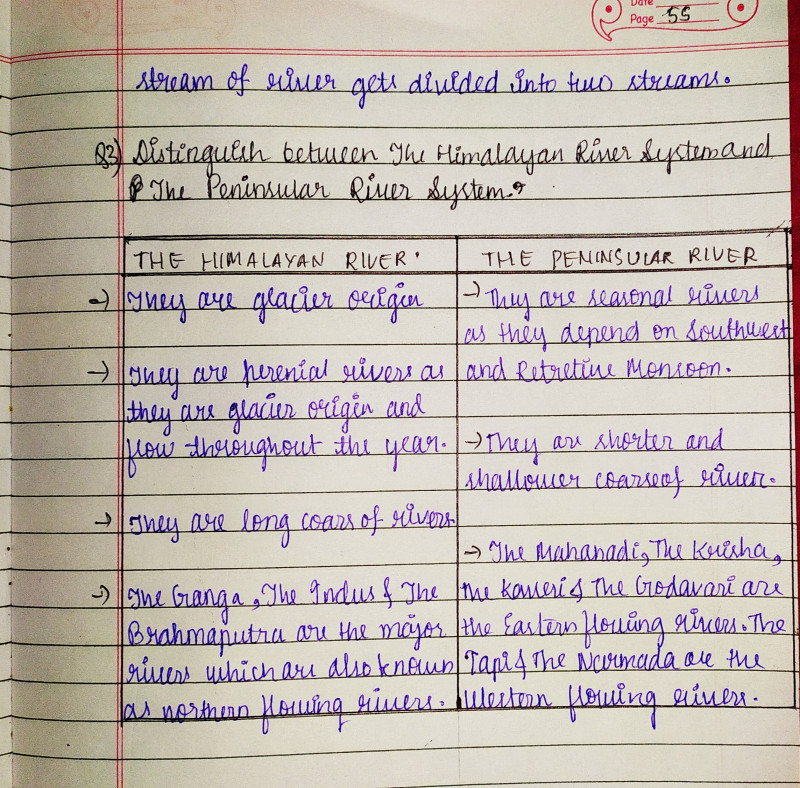 Date
Page 55
stream of river gets divided into two streams.
Q3) Distinguish between The Himalayan River System and
The Peninsular River System.
THE HIMALAYAN RIVER.
→) They are glacier origin
→) They are perenial rivers as
they are glacier origin and
flow throughout the year.
→) They are long coars of rivers.
→) The Ganga, The Indus & The
Brahmaputra are the major
rivers which are also known
as northern flowing rivers.
THE PENINSULAR RIVER
→ They are seasonal rivers
as they depend on Southwest
and Retretive Monsoon.
→ They are shorter and
shallower coarse of river.
→ The Mahanadi, The Krisha,
the Kaveri & The Godavari are
the Eastern flowing rivers. The
Tapi & The Narmada are the
Western flowing rivers.